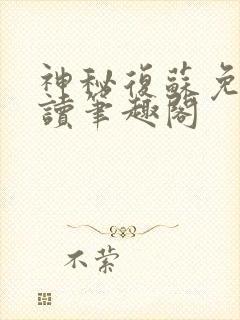 神秘復蘇免
讀筆趣閣
不縈